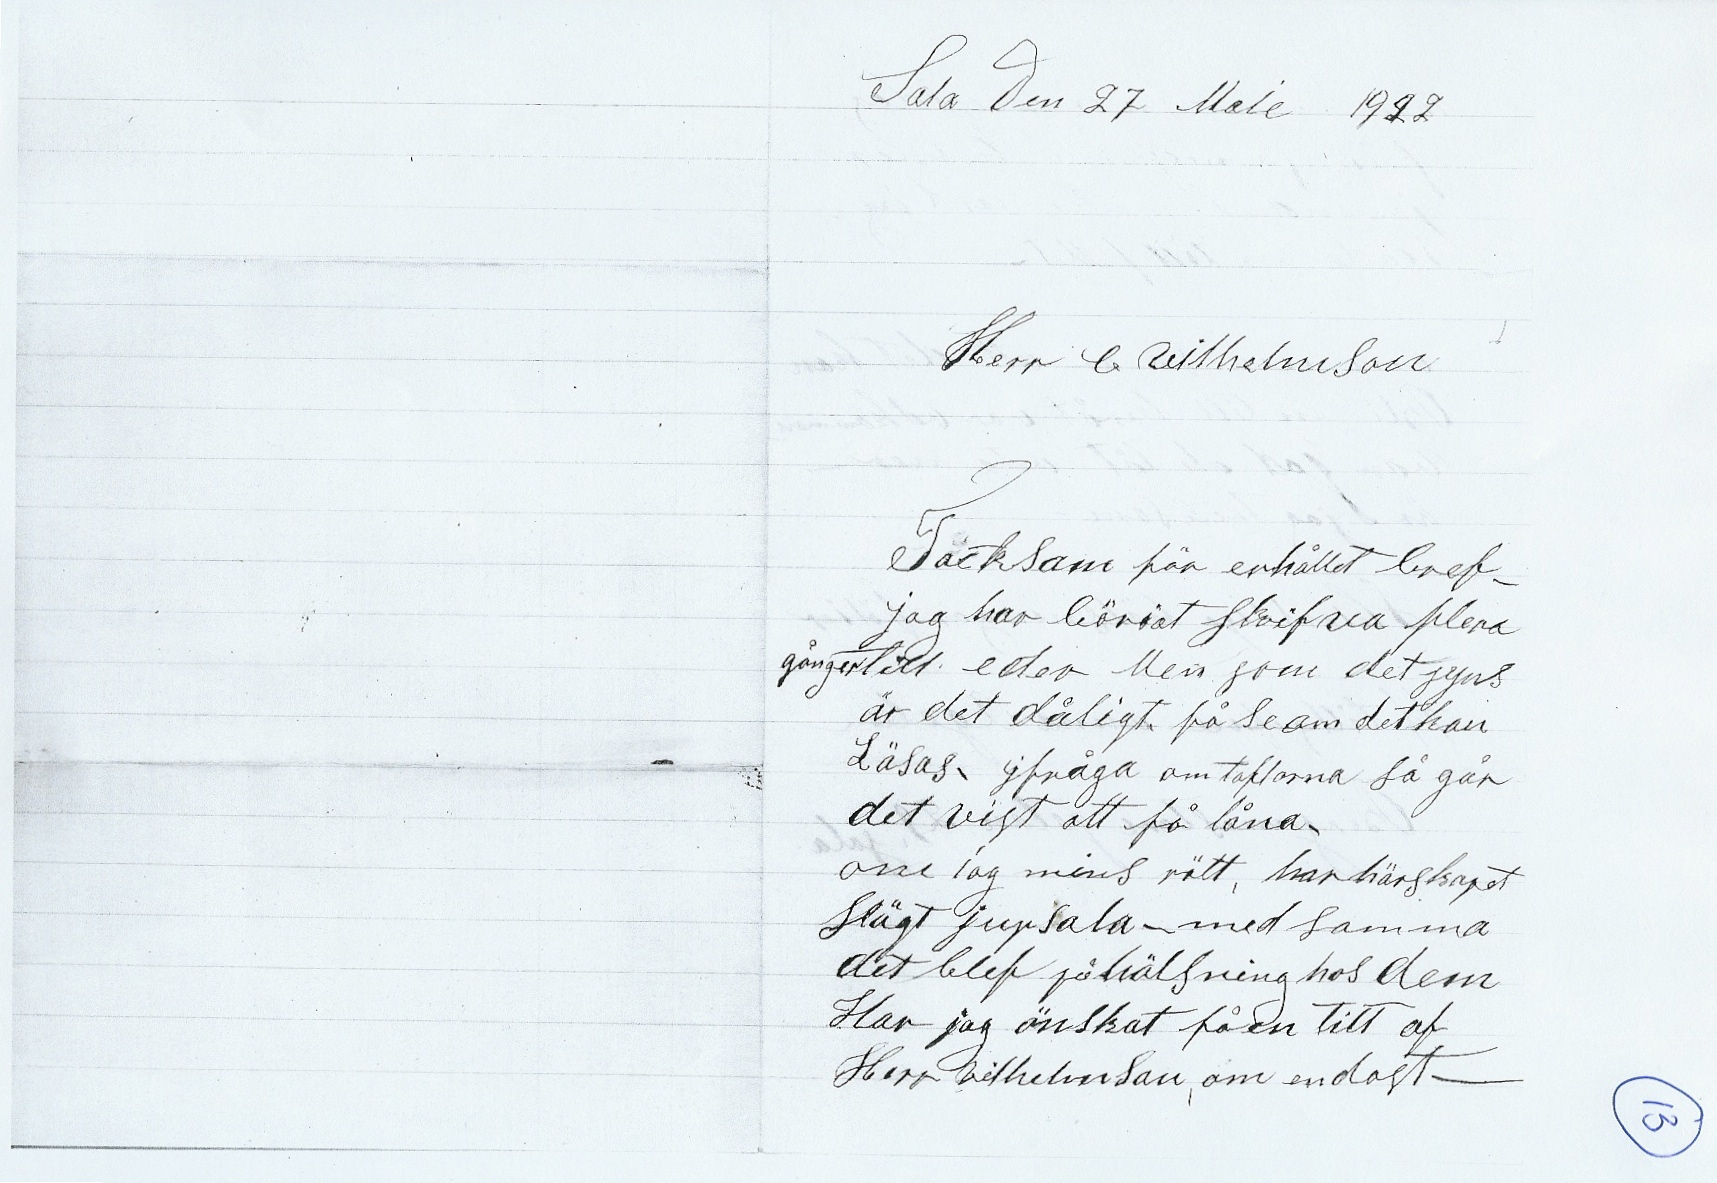 Sala Den 27 Maie 1922
Herr C Vilhelmson
Tacksam för erhållet bref
jag har börjat skrifva flera
gånger till eder Men som det syns
är det dåligt, få se om det kan
Läsas, ifråga om taflorna så går
det vist att få låna,
om jag mins rätt, har härskapet
slägt jupsala - med samma
det blef på hälsning hos dem
Har jag önskat få en titt af
Herr Vilhelmson, om endast —
13